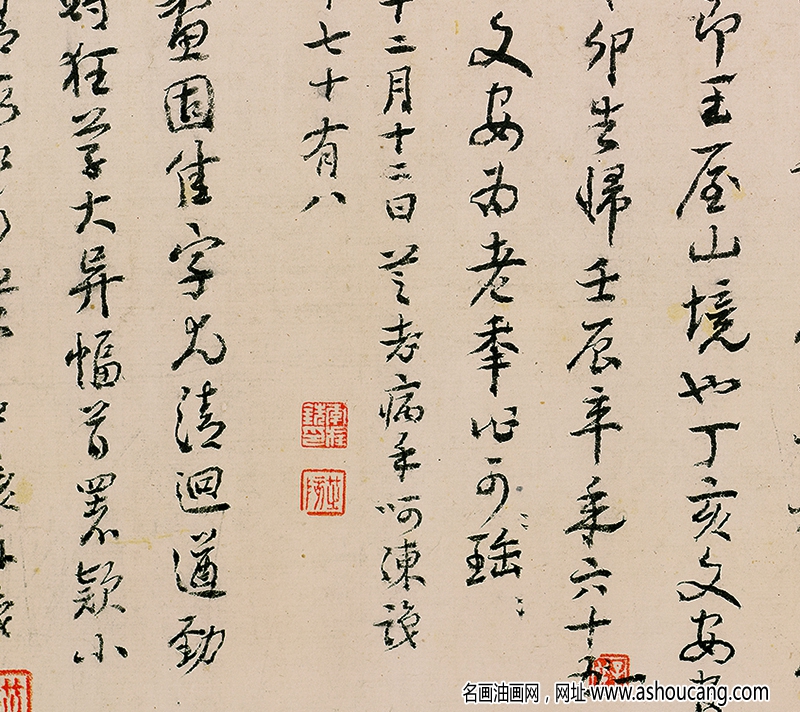 王屋山境也丁亥文安
卯告歸壬辰卒年六十
文安為老年作可珤
十二月十二日老病手呵凍識
七十有八
畫固佳字尤清迥遒勁
狂草大異幅首署款小
名画油画网，网址www.ashoucang.com